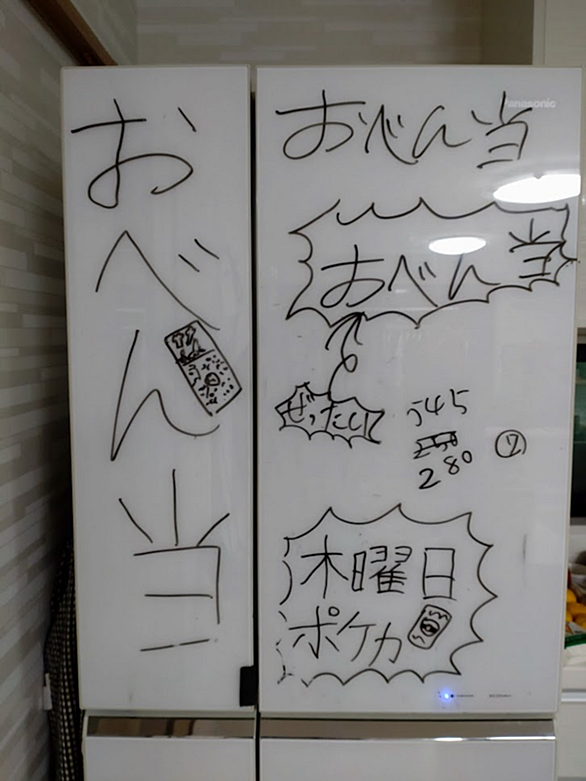 おべん当
Panasonic
おべん当
おべん当
ぜったい
545
280
②
木曜日
ポケカ